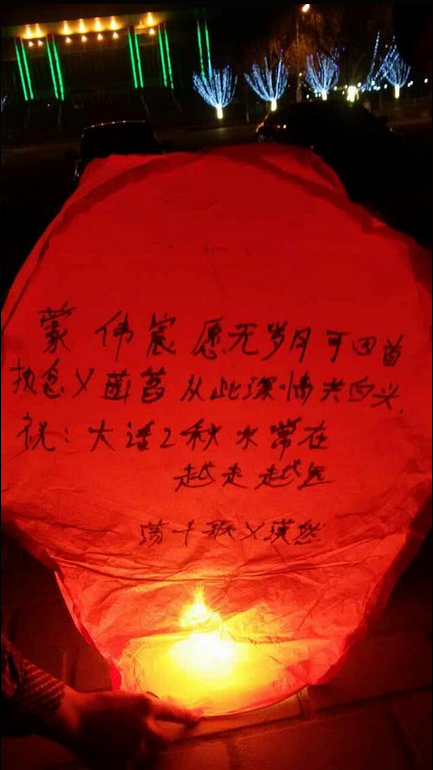 蒙 伟宸 愿无岁月可回首
执念乂菡萏 从此深情共白头
祝：大话2秋水常在
越走越远
千乂漠然